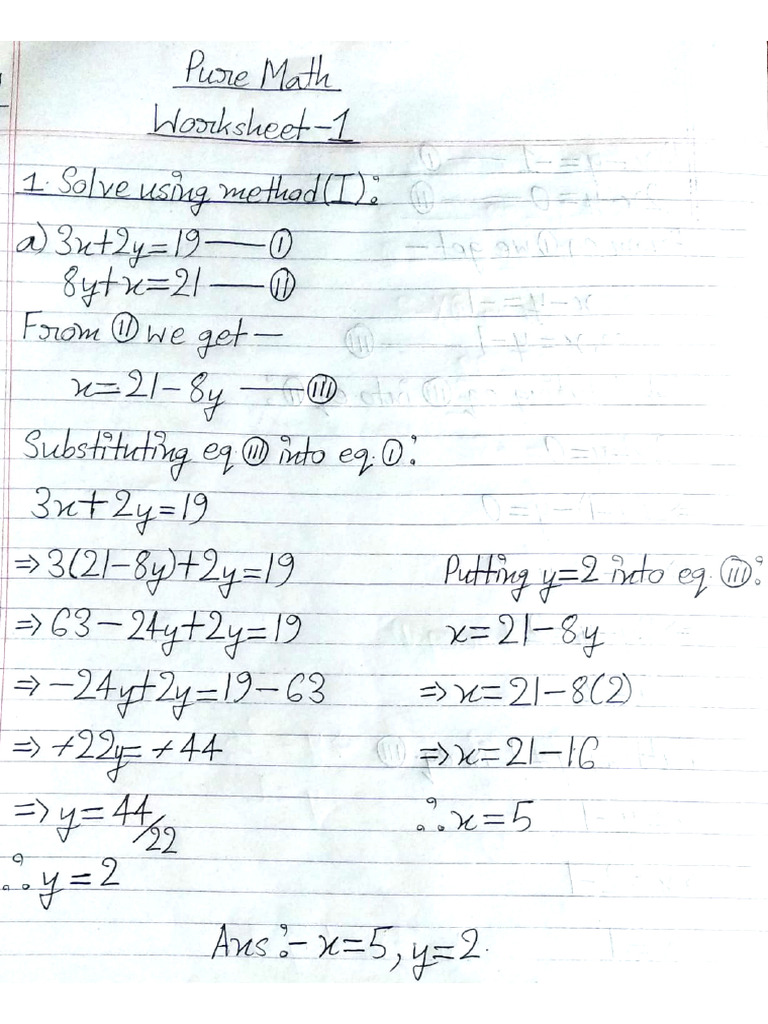 Pure Math
Worksheet-1
1. Solve using method(I):
a) 3x+2y=19 — ①
8y+x=21 — ⑪
From ⑪ we get —
x=21-8y — ⑪I
Substituting eq. ⑪I into eq. ①:
3x+2y=19
⇒3(21-8y)+2y=19
⇒63-24y+2y=19
⇒-24y+2y=19-63
⇒+22y=+44
⇒y=44/22
∴y=2
Putting y=2 into eq. ⑪I:
x=21-8y
⇒x=21-8(2)
⇒x=21-16
∴x=5
Ans:- x=5, y=2.